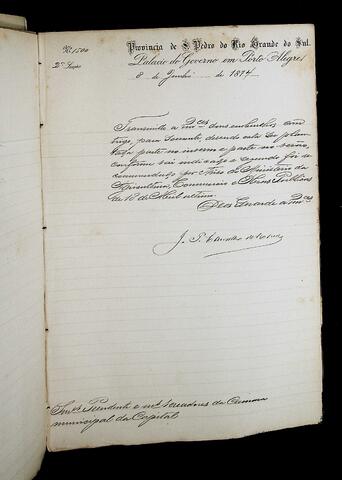 Nº 1500
2ª Secção
Provincia de S. Pedro do Rio Grande do Sul.
Palacio do Governo em Porto Alegre,
8 de Junho de 1874.
Transmitto a Vmces dous embrulhos com
trigo para semente, devendo este ser plan-
tado parte no inverno e parte no verão,
conforme vai indicado e segundo foi re-
commendado por Aviso do Ministerio da
Agricultura, Commercio e Obras Publicas
de 16 de Abril ultimo.
Deos Guarde a Vmces
J. P. Carvalho de Moraes
Snres Presidente e mais Vereadores da Camara
municipal da Capital